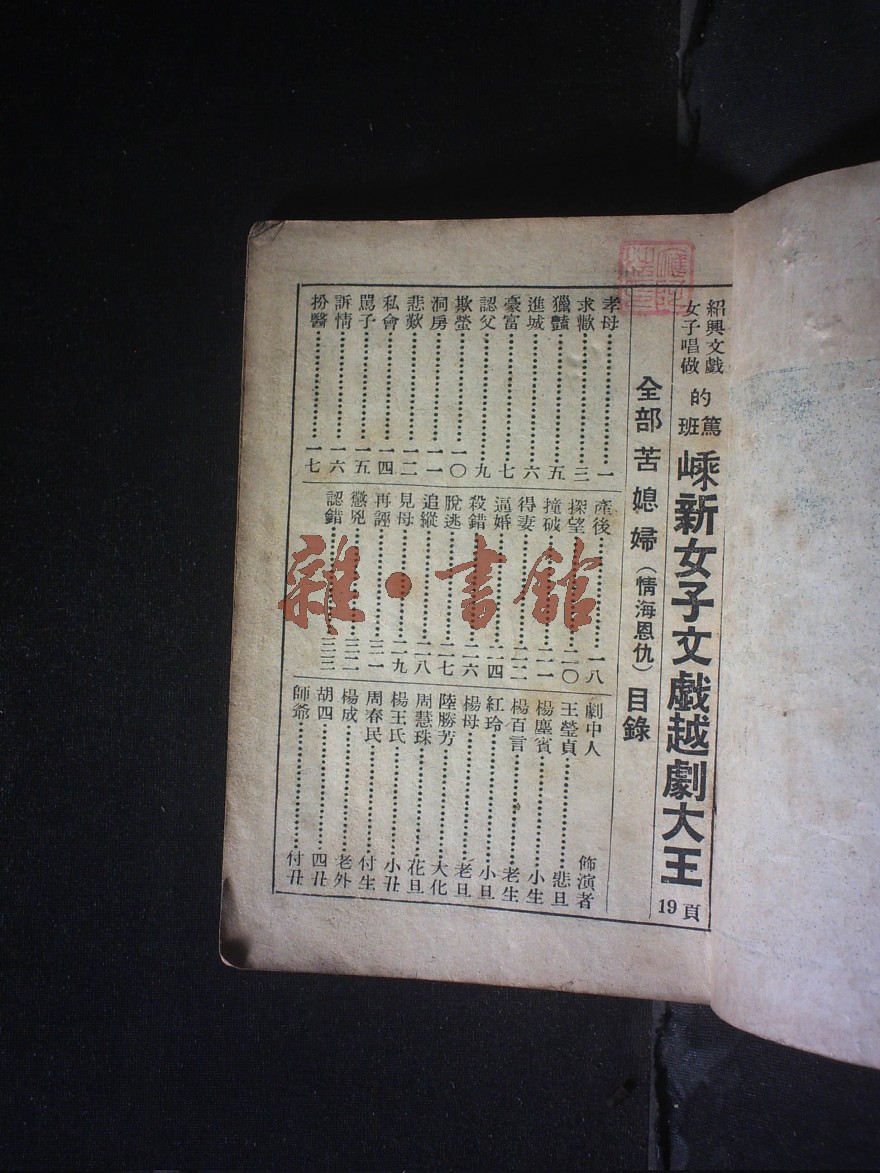 紹興文戲
女子唱做
的篤班
嵊新女子文戲越劇大王
19頁
全部苦媳婦（情海恩仇）目錄
孝母……一
求懒……三
獵豔……五
進城……六
豪富……七
認父……九
欺瑩……一〇
洞房……一一
悲歎……一二
私會……一四
罵子……一五
訴情……一六
扮醫……一七
產後……一八
探望……二〇
撞破……二一
得妻……二二
逼婚……二四
殺錯……二六
脫逃……二七
追縱……二八
見母……二九
再誣……三一
懲兇……三二
認錯……三三
劇中人 飾演者
王瑩貞……悲旦
楊塵賓……小生
楊百言……老生
紅玲……小旦
楊母……老旦
陸勝芳……大化
周慧珠……花旦
楊王氏……小丑
周春民……付生
楊成……老外
胡四……四丑
師爺……付丑
雜·書館